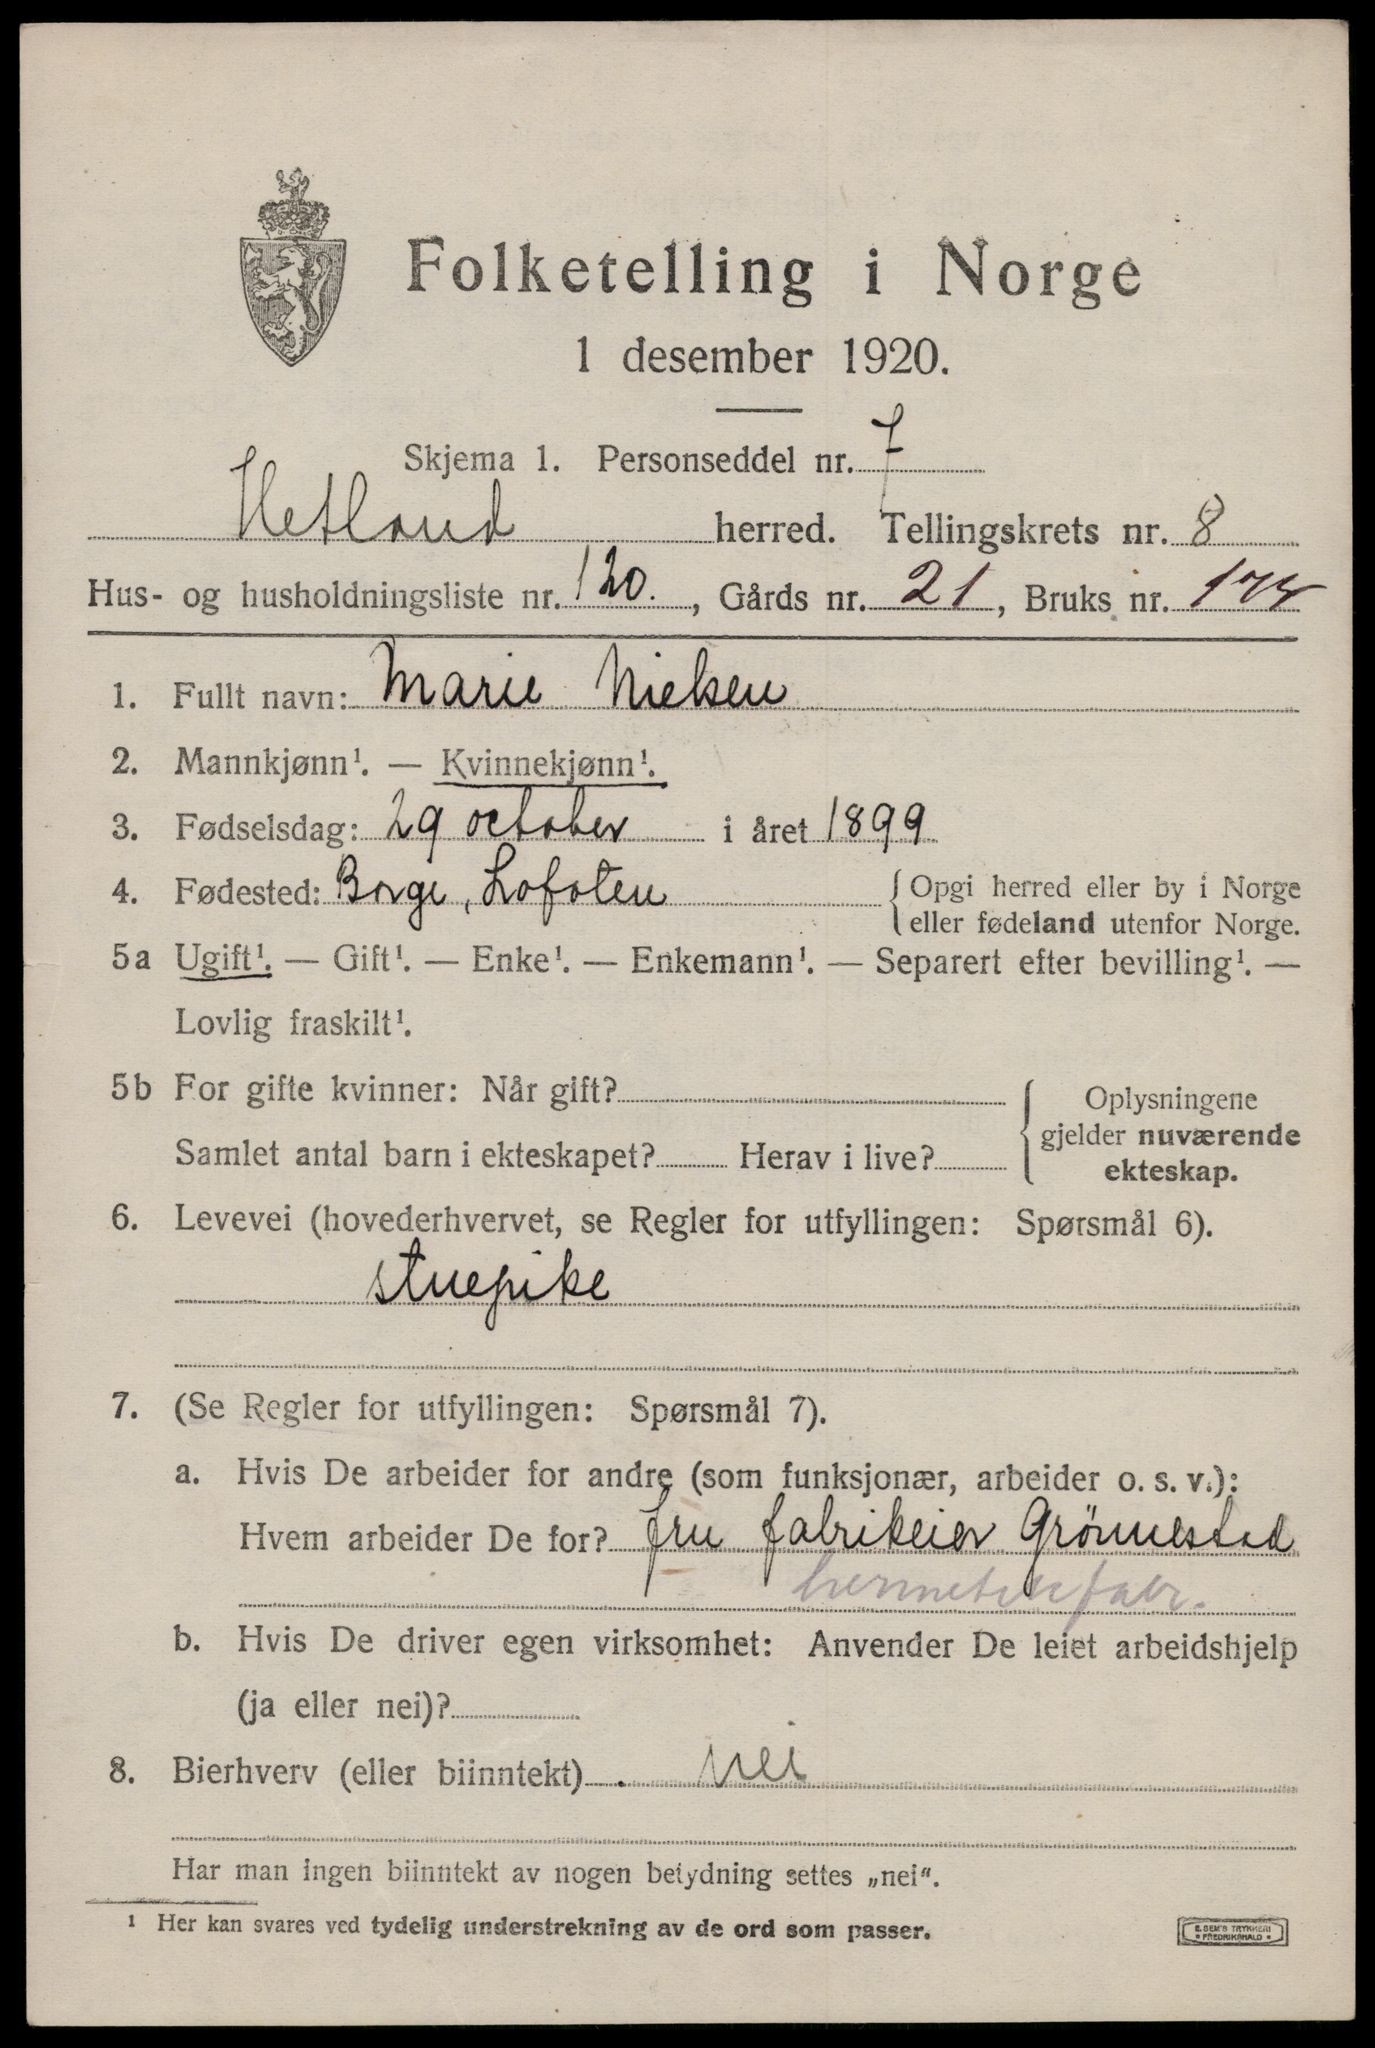 Folketelling i Norge
1 desember 1920.
Skjema 1. Personseddel nr. 7
Hetland herred. Tellingskrets nr. 8
Hus- og husholdningsliste nr. 120. , Gårds nr. 21 , Bruks nr.
1. Fullt navn: Marie Nielsen
2. Mannkjønn¹. — Kvinnekjønn¹.
3. Fødselsdag: 29 october i året 1899
4. Fødested: Borge, Lofoten { Opgi herred eller by i Norge
eller fødeland utenfor Norge.
5a Ugift¹. — Gift¹. — Enke¹. — Enkemann¹. — Separert efter bevilling¹. —
Lovlig fraskilt¹.
5b For gifte kvinner: Når gift? { Oplysningene
gjelder nuværende
Samlet antal barn i ekteskapet? Herav i live? ekteskap.
6. Levevei (hovederhvervet, se Regler for utfyllingen: Spørsmål 6).
stuepike
7. (Se Regler for utfyllingen: Spørsmål 7).
a. Hvis De arbeider for andre (som funksjonær, arbeider o. s. v.):
Hvem arbeider De for? fru fabrikeier Grönnestad
hermetikfabr.
b. Hvis De driver egen virksomhet: Anvender De leiet arbeidshjelp
(ja eller nei)?
8. Bierhverv (eller biinntekt) nei
Har man ingen biinntekt av nogen betydning settes „nei“.
¹ Her kan svares ved tydelig understrekning av de ord som passer.
E. SEM'S TRYKKERI
• FREDRIKSHALD •